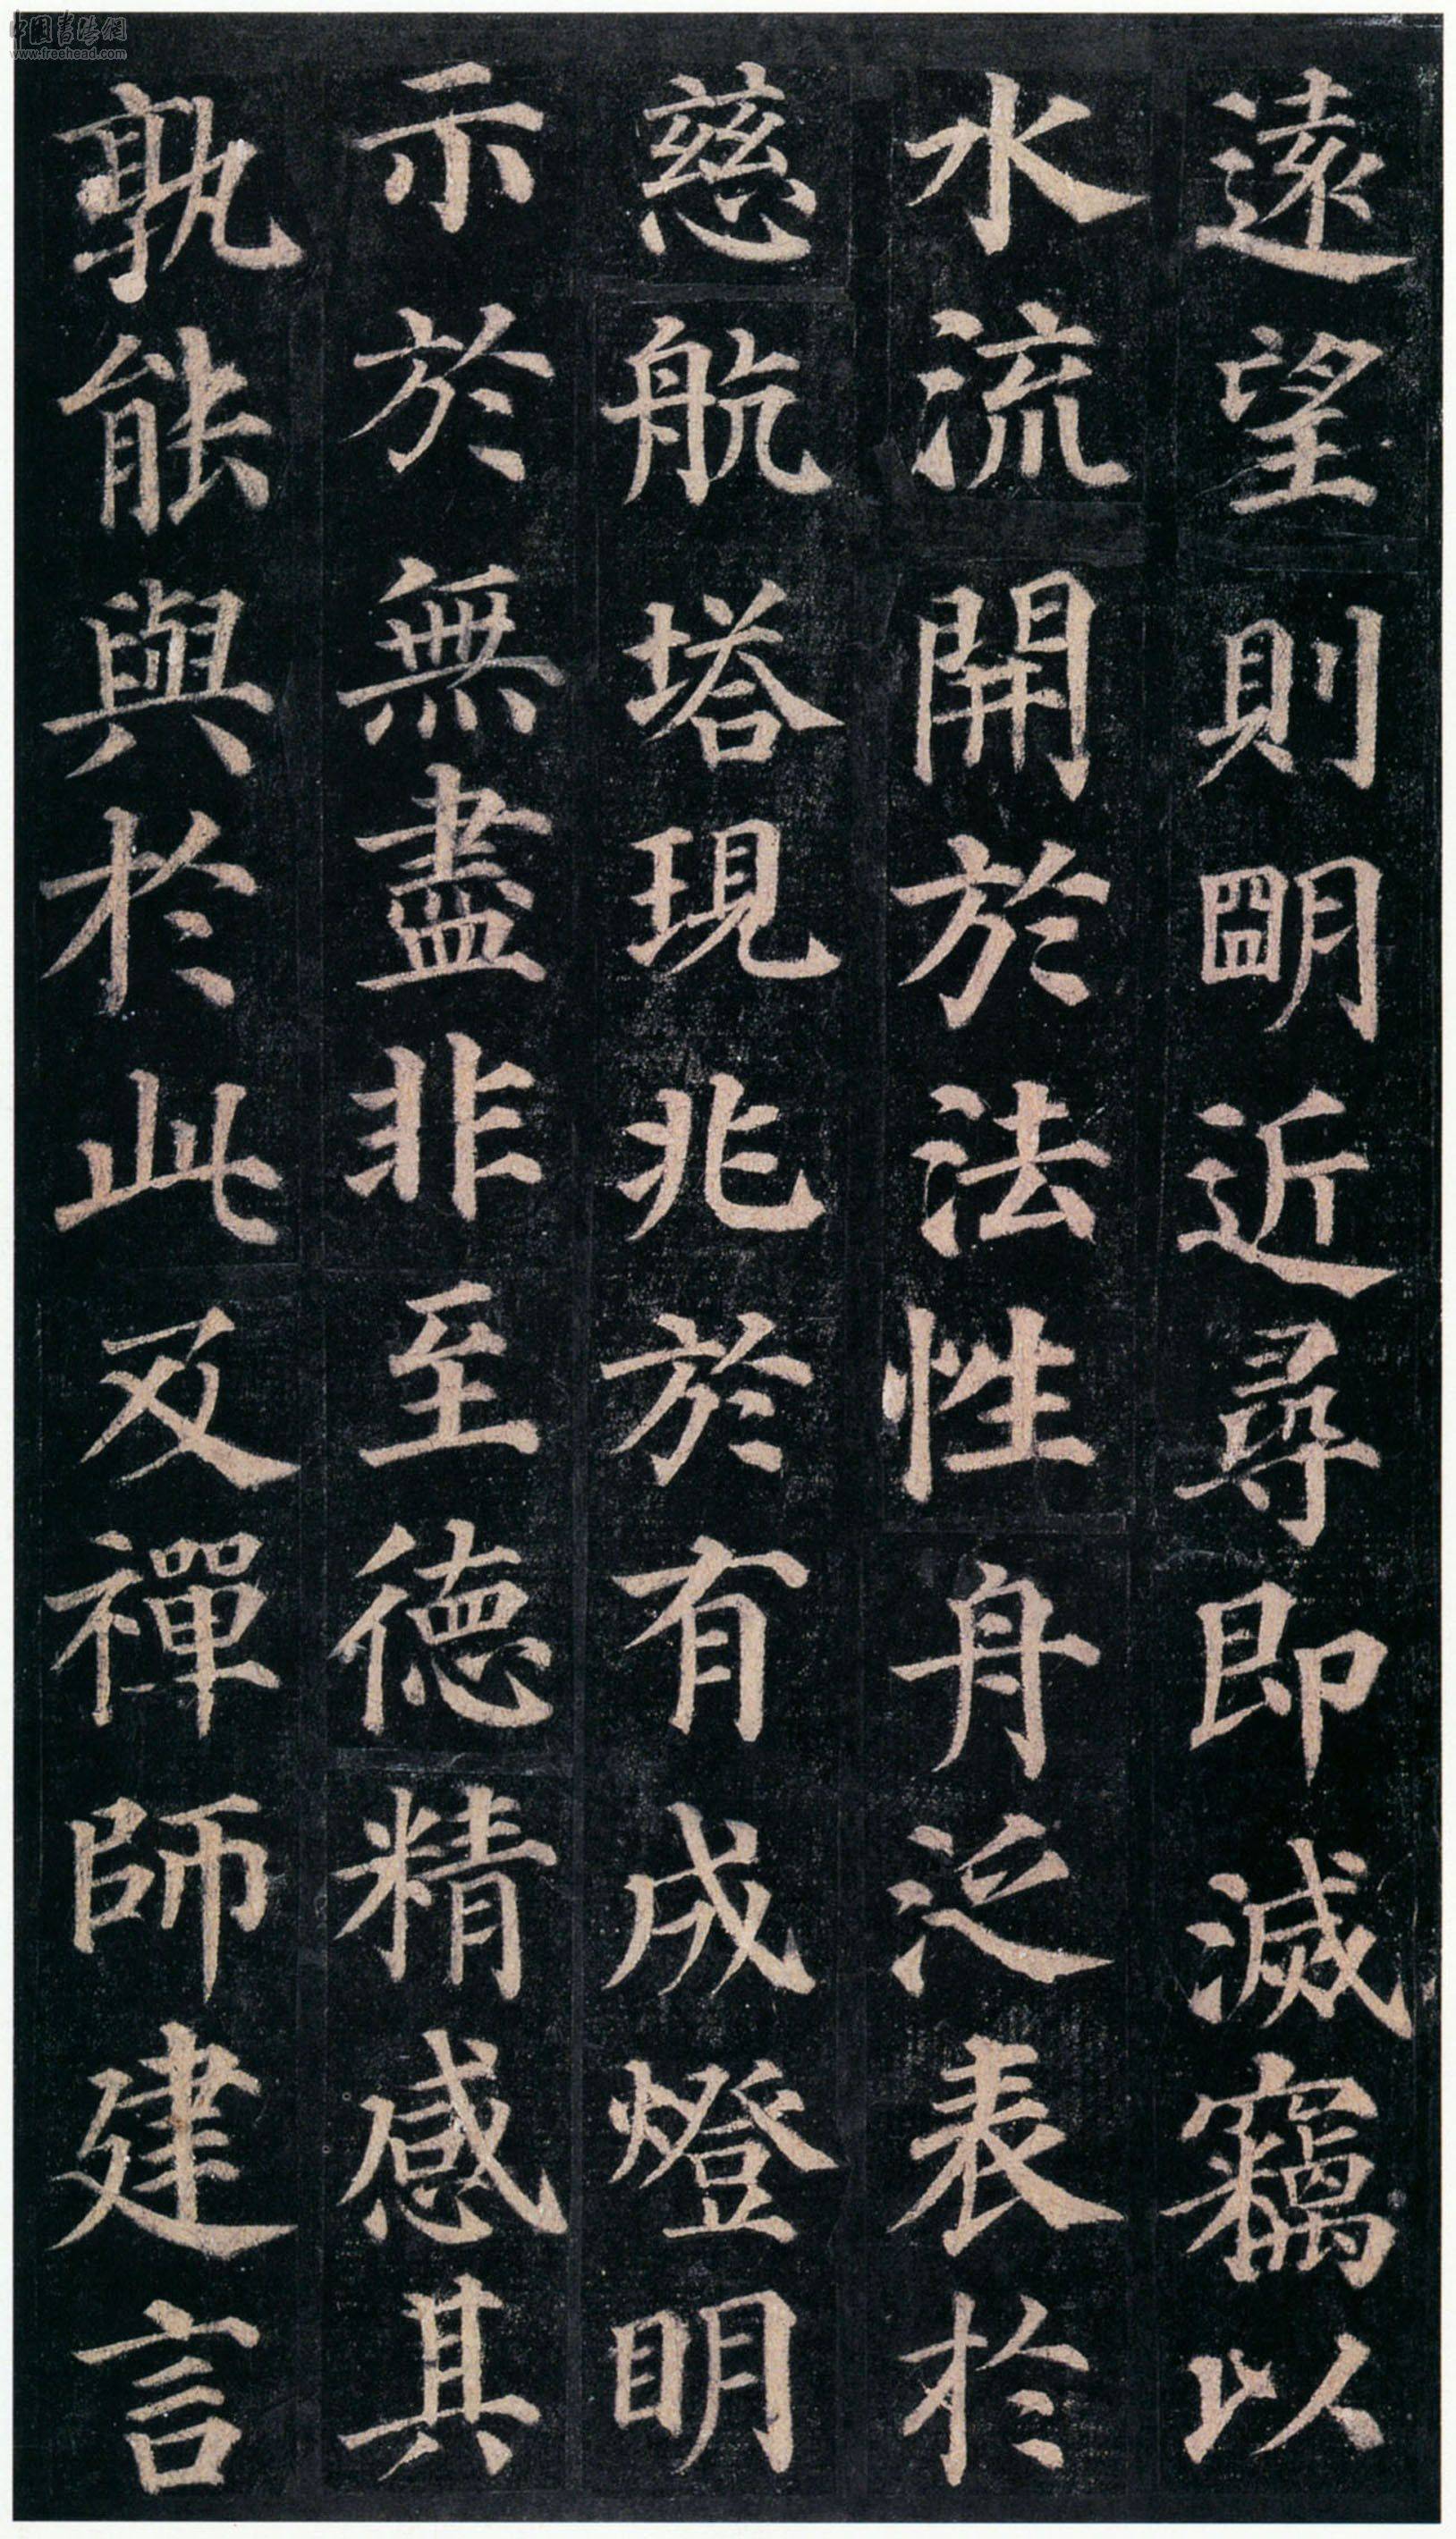 遠望則朙近尋即滅竊以
水流開於法性舟泛表於
慈航塔現兆於有成燈明
示於無盡非至德精感其
孰能與於此及禪師建言
中国书法網
www.freehead.com